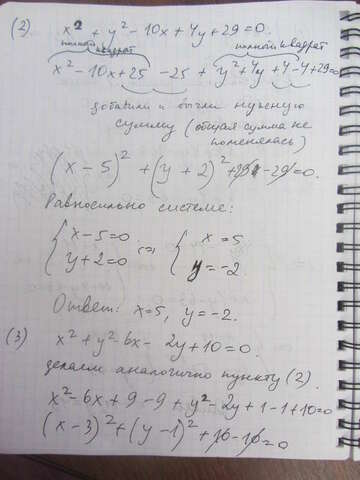 (2) x² + y² - 10x + 4y + 29 = 0.
полный квадрат полный квадрат
x² - 10x + 25 - 25 + y² + 4y + 4 - 4 + 29 = 0
добавили и вычли нужную
сумму (общая сумма не
поменялась)
(x - 5)² + (y + 2)² + 29 - 29 = 0.
Равносильно системе:
{ x - 5 = 0 <=> { x = 5
y + 2 = 0 y = -2.
Ответ: x = 5, y = -2.
(3) x² + y² - 6x - 2y + 10 = 0.
делаем аналогично пункту (2).
x² - 6x + 9 - 9 + y² - 2y + 1 - 1 + 10 = 0
(x - 3)² + (y - 1)² + 10 - 10 = 0